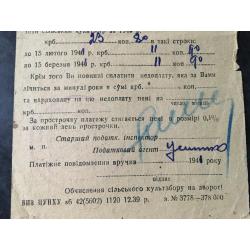 крб. 23 коп. 80 в такі строки:
до 15 лютого 1941 р. крб. 11 коп. 90
до 15 березня 1941 р. крб. 11 коп. 90
Крім того Ви повинні сплатити недоплату, яка за Вами
лічиться за минулі роки в сумі крб. коп.
та нараховану на цю недоплату пеню на
За прострочку платежу стягається пеня в розмірі 0,1%
за кожний день прострочки.
Старший податк. інспектор
Податковий агент
Платіжне повідомлення вручив 1941 року
підпис
Обчислення сільського культзбору на звороті
БВВ ЦУНХУ вб 42(5602) 1120 12.39 р. з. № 3778—378 000